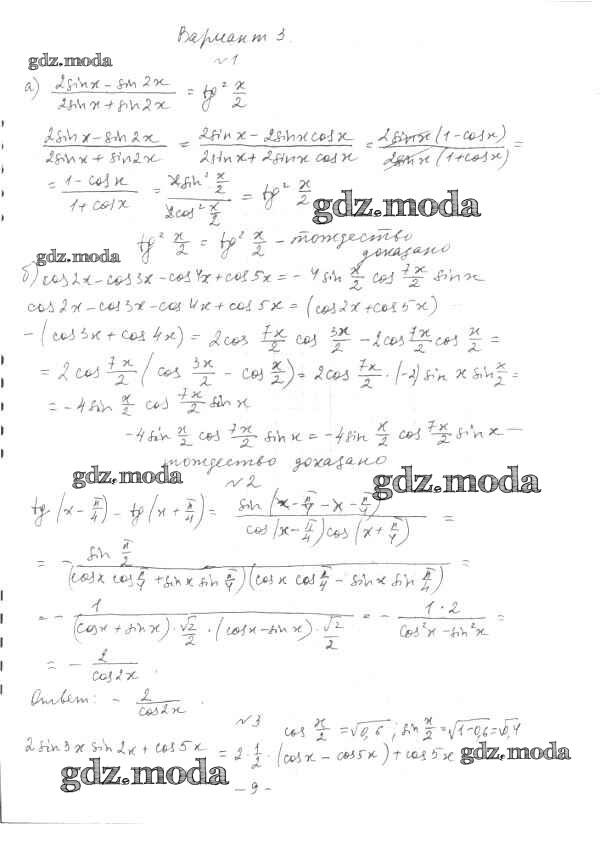 Вариант 3.
gdz.moda
№1
а) (2sinx - sin2x)/(2sinx + sin2x) = tg² x/2
(2sinx - sin2x)/(2sinx + sin2x) = (2sinx - 2sinxcosx)/(2sinx + 2sinx cosx) = (2sinx(1-cosx))/(2sinx(1+cosx)) =
= (1 - cosx)/(1 + cosx) = (2sin² x/2)/(2cos² x/2) = tg² x/2
gdz.moda
tg² x/2 = tg² x/2 - тождество
доказано
gdz.moda
б) cos2x - cos3x - cos4x + cos5x = - 4sin x/2 cos 7x/2 sinx
cos2x - cos3x - cos4x + cos5x = (cos2x + cos5x)
- (cos3x + cos4x) = 2cos 7x/2 cos 3x/2 - 2cos 7x/2 cos x/2 =
= 2cos 7x/2 (cos 3x/2 - cos x/2) = 2cos 7x/2 · (-2) sin x sin x/2 =
= - 4sin x/2 cos 7x/2 sinx
- 4sin x/2 cos 7x/2 sinx = - 4sin x/2 cos 7x/2 sinx —
тождество доказано
gdz.moda
gdz.moda
№2
tg(x - π/4) - tg(x + π/4) = sin(x - π/4 - x - π/4)/(cos(x - π/4)cos(x + π/4)) =
= - (sin π/2)/((cosx cos π/4 + sinx sin π/4)(cosx cos π/4 - sinx sin π/4)) =
= - 1/((cosx + sinx)·√2/2 · (cosx - sinx)·√2/2) = - (1·2)/(cos²x - sin²x) =
= - 2/cos2x.
Ответ: - 2/cos2x.
№3
cos x/2 = √0,6; sin x/2 = √1-0,6 = √0,4
2sin3x sin2x + cos5x = 2·1/2·(cosx - cos5x) + cos5x
gdz.moda
gdz.moda
- 9 -